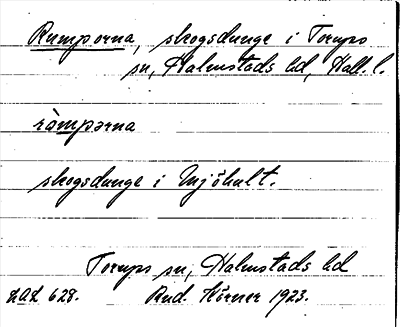 Rumporna, skogsdunge i Torups
sn, Halmstads hd, Hall. l.
ròmpərna
skogsdunge i Mjöhult.
Torups sn, Halmstads hd
Rud. Körner 1923.